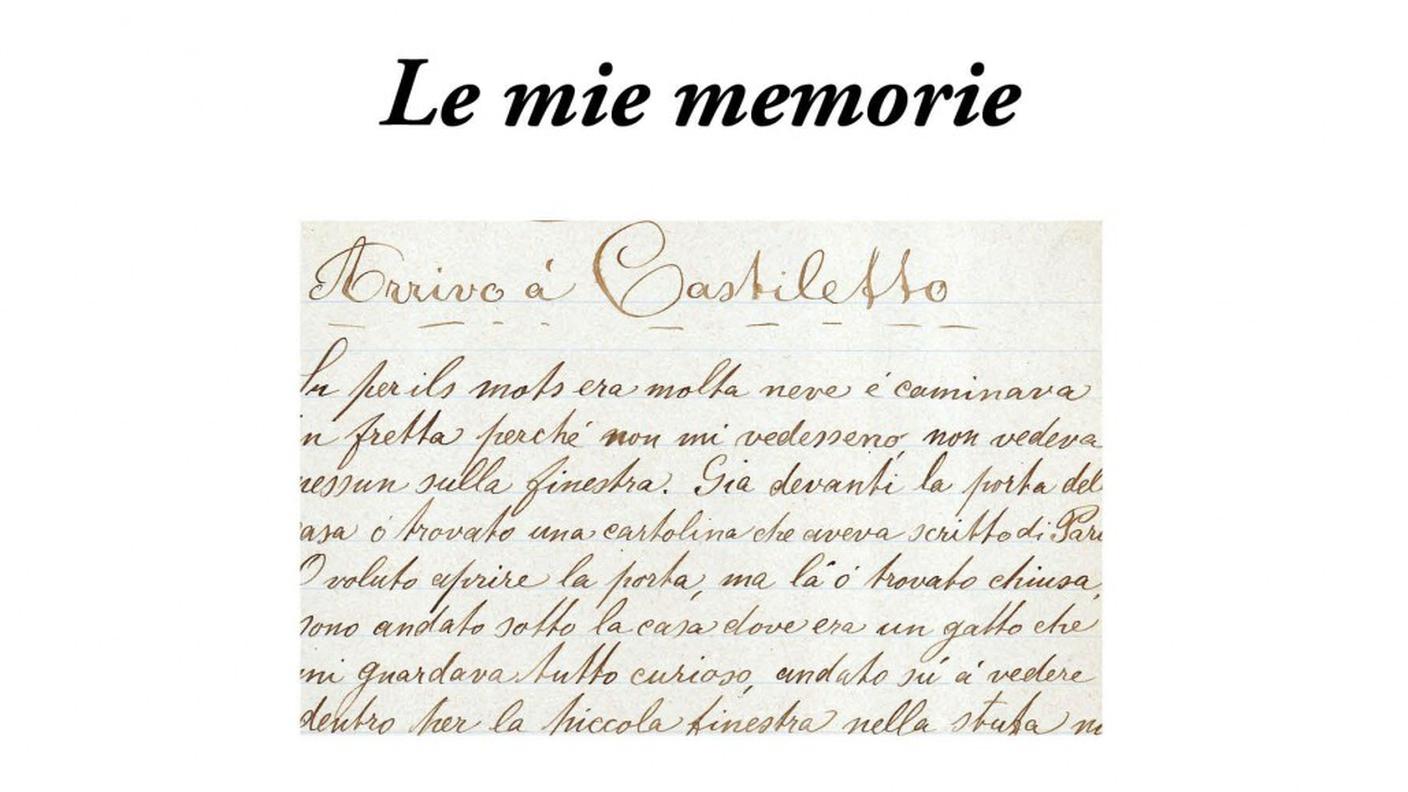 Le mie memorie
Arrivo á Castiletto
Su per ils mots era molta neve é caminava
in fretta perché non mi vedesseno, non vedeva
nessun sulla finestra. Gia devanti la porta del
casa ó trovato una cartolina che aveva scritto di Pari
O voluto aprire la porta, ma lá ó trovato chiusa,
sono andato sotto la casa dove era un gatto che
mi guardava tutto curioso, andato sú á vedere
dentro per la piccola finestra nella stufa